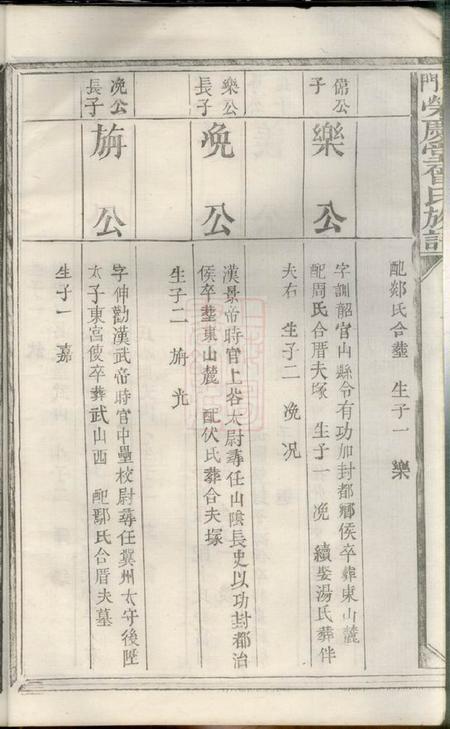 門榮慶堂曾氏族譜
配鄒氏合葬 生子一 樂
儲公
子
樂公
字訓韶官山縣令有功加封都鄉侯卒葬東山麓
配周氏合厝夫塚 生子一 浼 續娶湯氏葬伴
夫右 生子二 浼况
樂公
長子
浼公
漢景帝時官上谷太尉尋任山陰長史以功封都治
侯卒葬東山麓 配伏氏葬合夫塚
生子二 旃光
浼公
長子
旃公
字伸勸漢武帝時官中壘校尉尋任冀州太守後陞
太子東宮使卒葬武山西 配鄢氏合厝夫墓
生子一 嘉